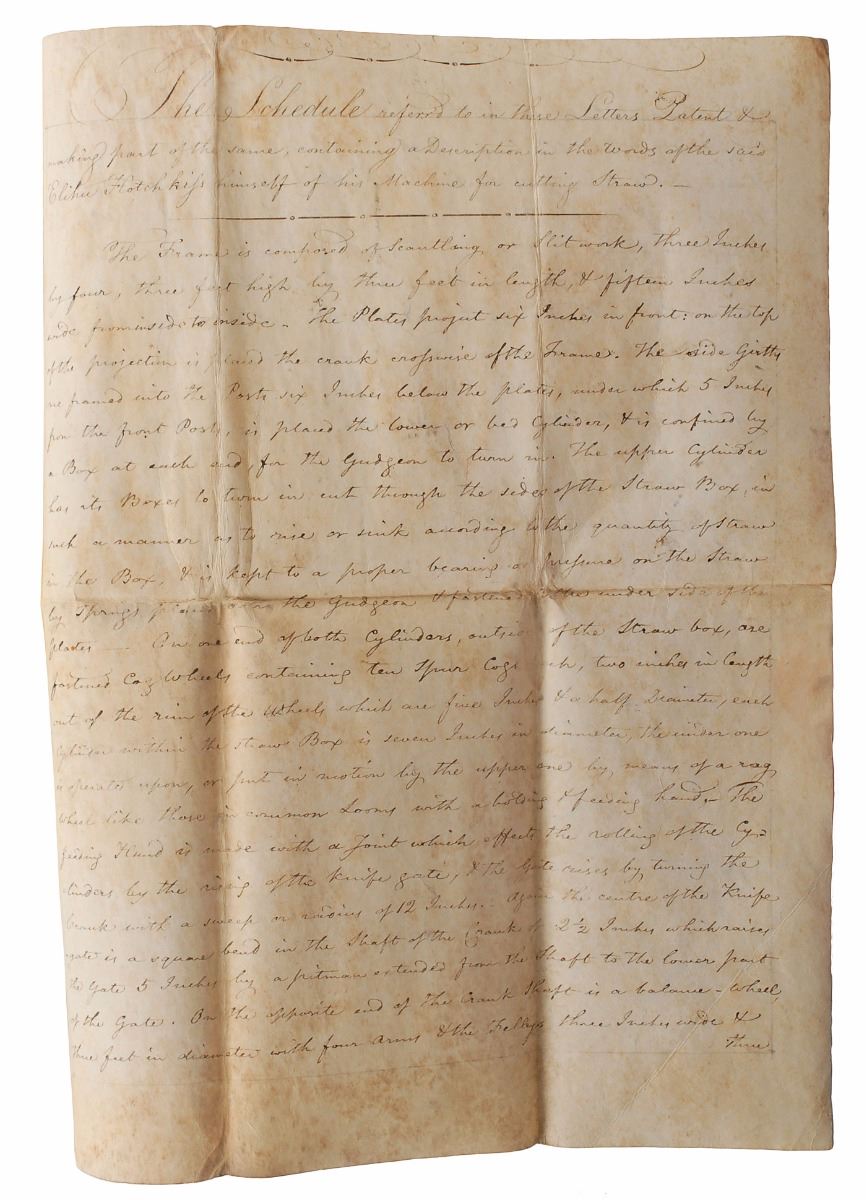 The Schedule referred to in these Letters Patent &
making part of the same, containing a Description in the words of the said
Elihu Hotchkiss himself of his Machine for cutting Straw. —
The Frame is composed of Scantling or Slitwork, three Inches
by four, three feet high by three feet in length, & fifteen Inches
wide from inside to inside - The Plates project six Inches in front: on the top
of the projection is placed the crank crosswise of the Frame. The side Girths
are framed into the Posts six Inches below the plates, under which 5 Inches
from the front Posts, is placed the lower or bed Cylinder, & is confined by
a Box at each end, for the Gudgeon to turn in. The upper Cylinder
has its Boxes to turn in cut through the sides of the Straw Box, in
such a manner as to rise or sink according to the quantity of Straw
in the Box, & is kept to a proper bearing or pressure on the Straw
by Springs placed the Gudgeon & fastened to the under side of the
plates — On one end of both Cylinders, outside of the Straw box, are
fastened Cog Wheels containing ten Spur Cogs each, two inches in length
out of the rim of the Wheels which are five Inches & a half Diameter, each
Cylinder within the Straw Box is seven Inches in diameter, the under one
is operated upon, or put in motion by the upper one by means of a rag
wheel like those in common Looms with a holding & feeding hand,- The
feeding Hand is made with a Joint which effects the rolling of the Cy=
linders by the rising of the Knife gate, & the Gate raises by turning the
Crank with a sweep or radius of 12 Inches.- Again the centre of the Knife
gate is a square bend in the Shaft of the Crank of 2½ Inches which raises
the Gate 5 Inches by a pitman extended from the Shaft to the lower part
of the Gate. On the opposite end of the Crank Shaft is a balance-wheel,
three feet in diameter with four arms & the Felleys three Inches wide &
three